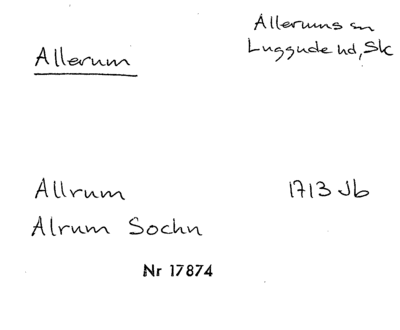 Allerum
Allerums sn
Luggude hd, Sk
Allrum 1713 Jb
Alrum Sochn
Nr 17874